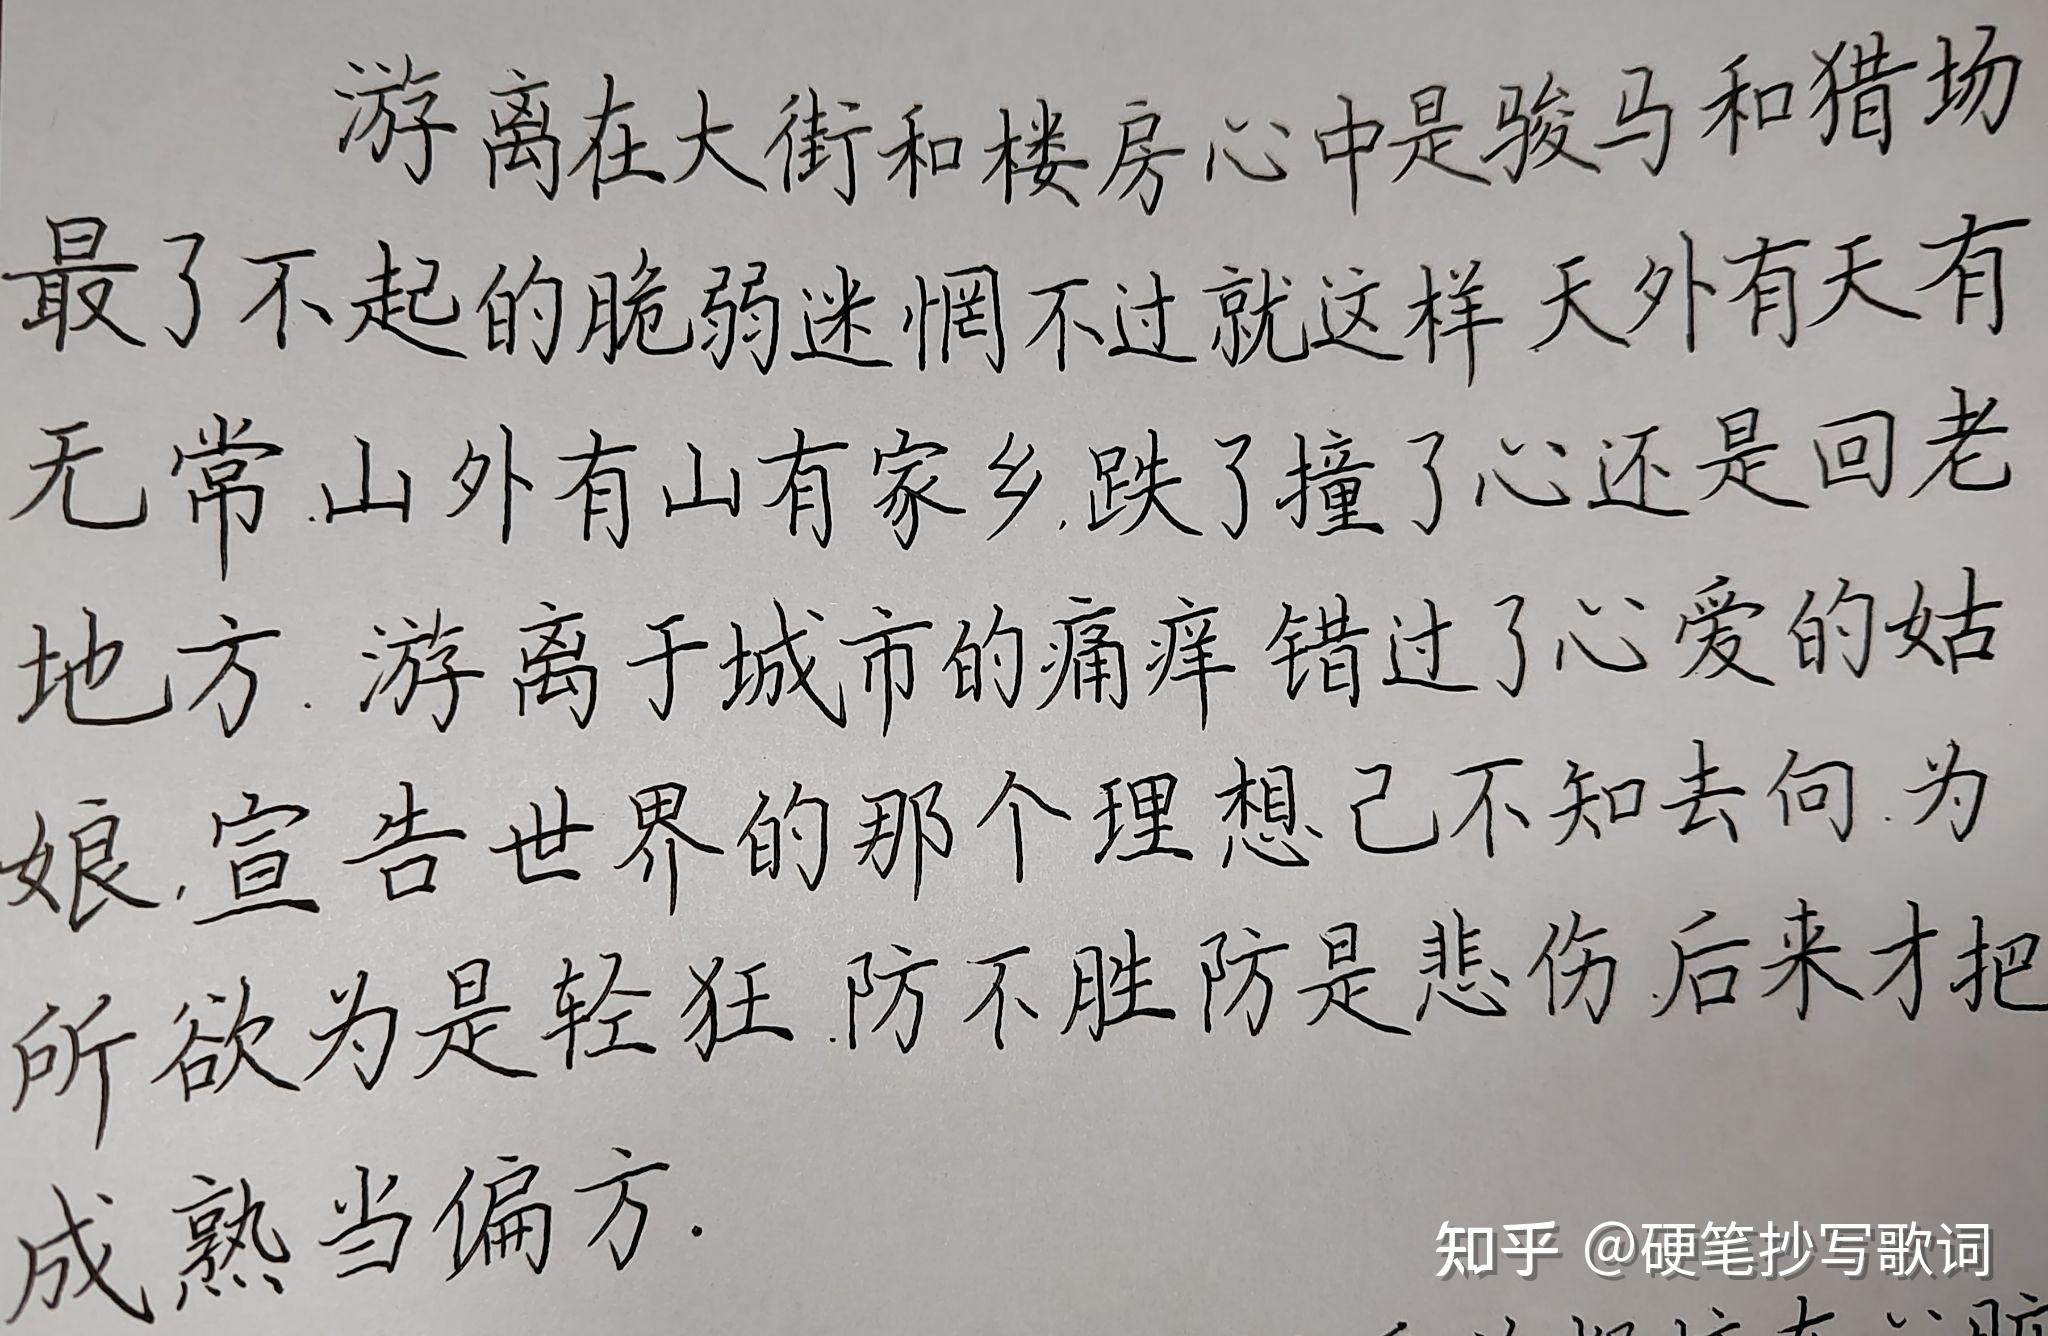 游离在大街和楼房心中是骏马和猎场
最了不起的脆弱迷惘不过就这样 天外有天有
无常.山外有山有家乡.跌了撞了心还是回老
地方.游离于城市的痛痒 错过了心爱的姑
娘.宣告世界的那个理想.己不知去向.为
所欲为是轻狂.防不胜防是悲伤.后来才把
成熟当偏方.
知乎 @硬笔抄写歌词